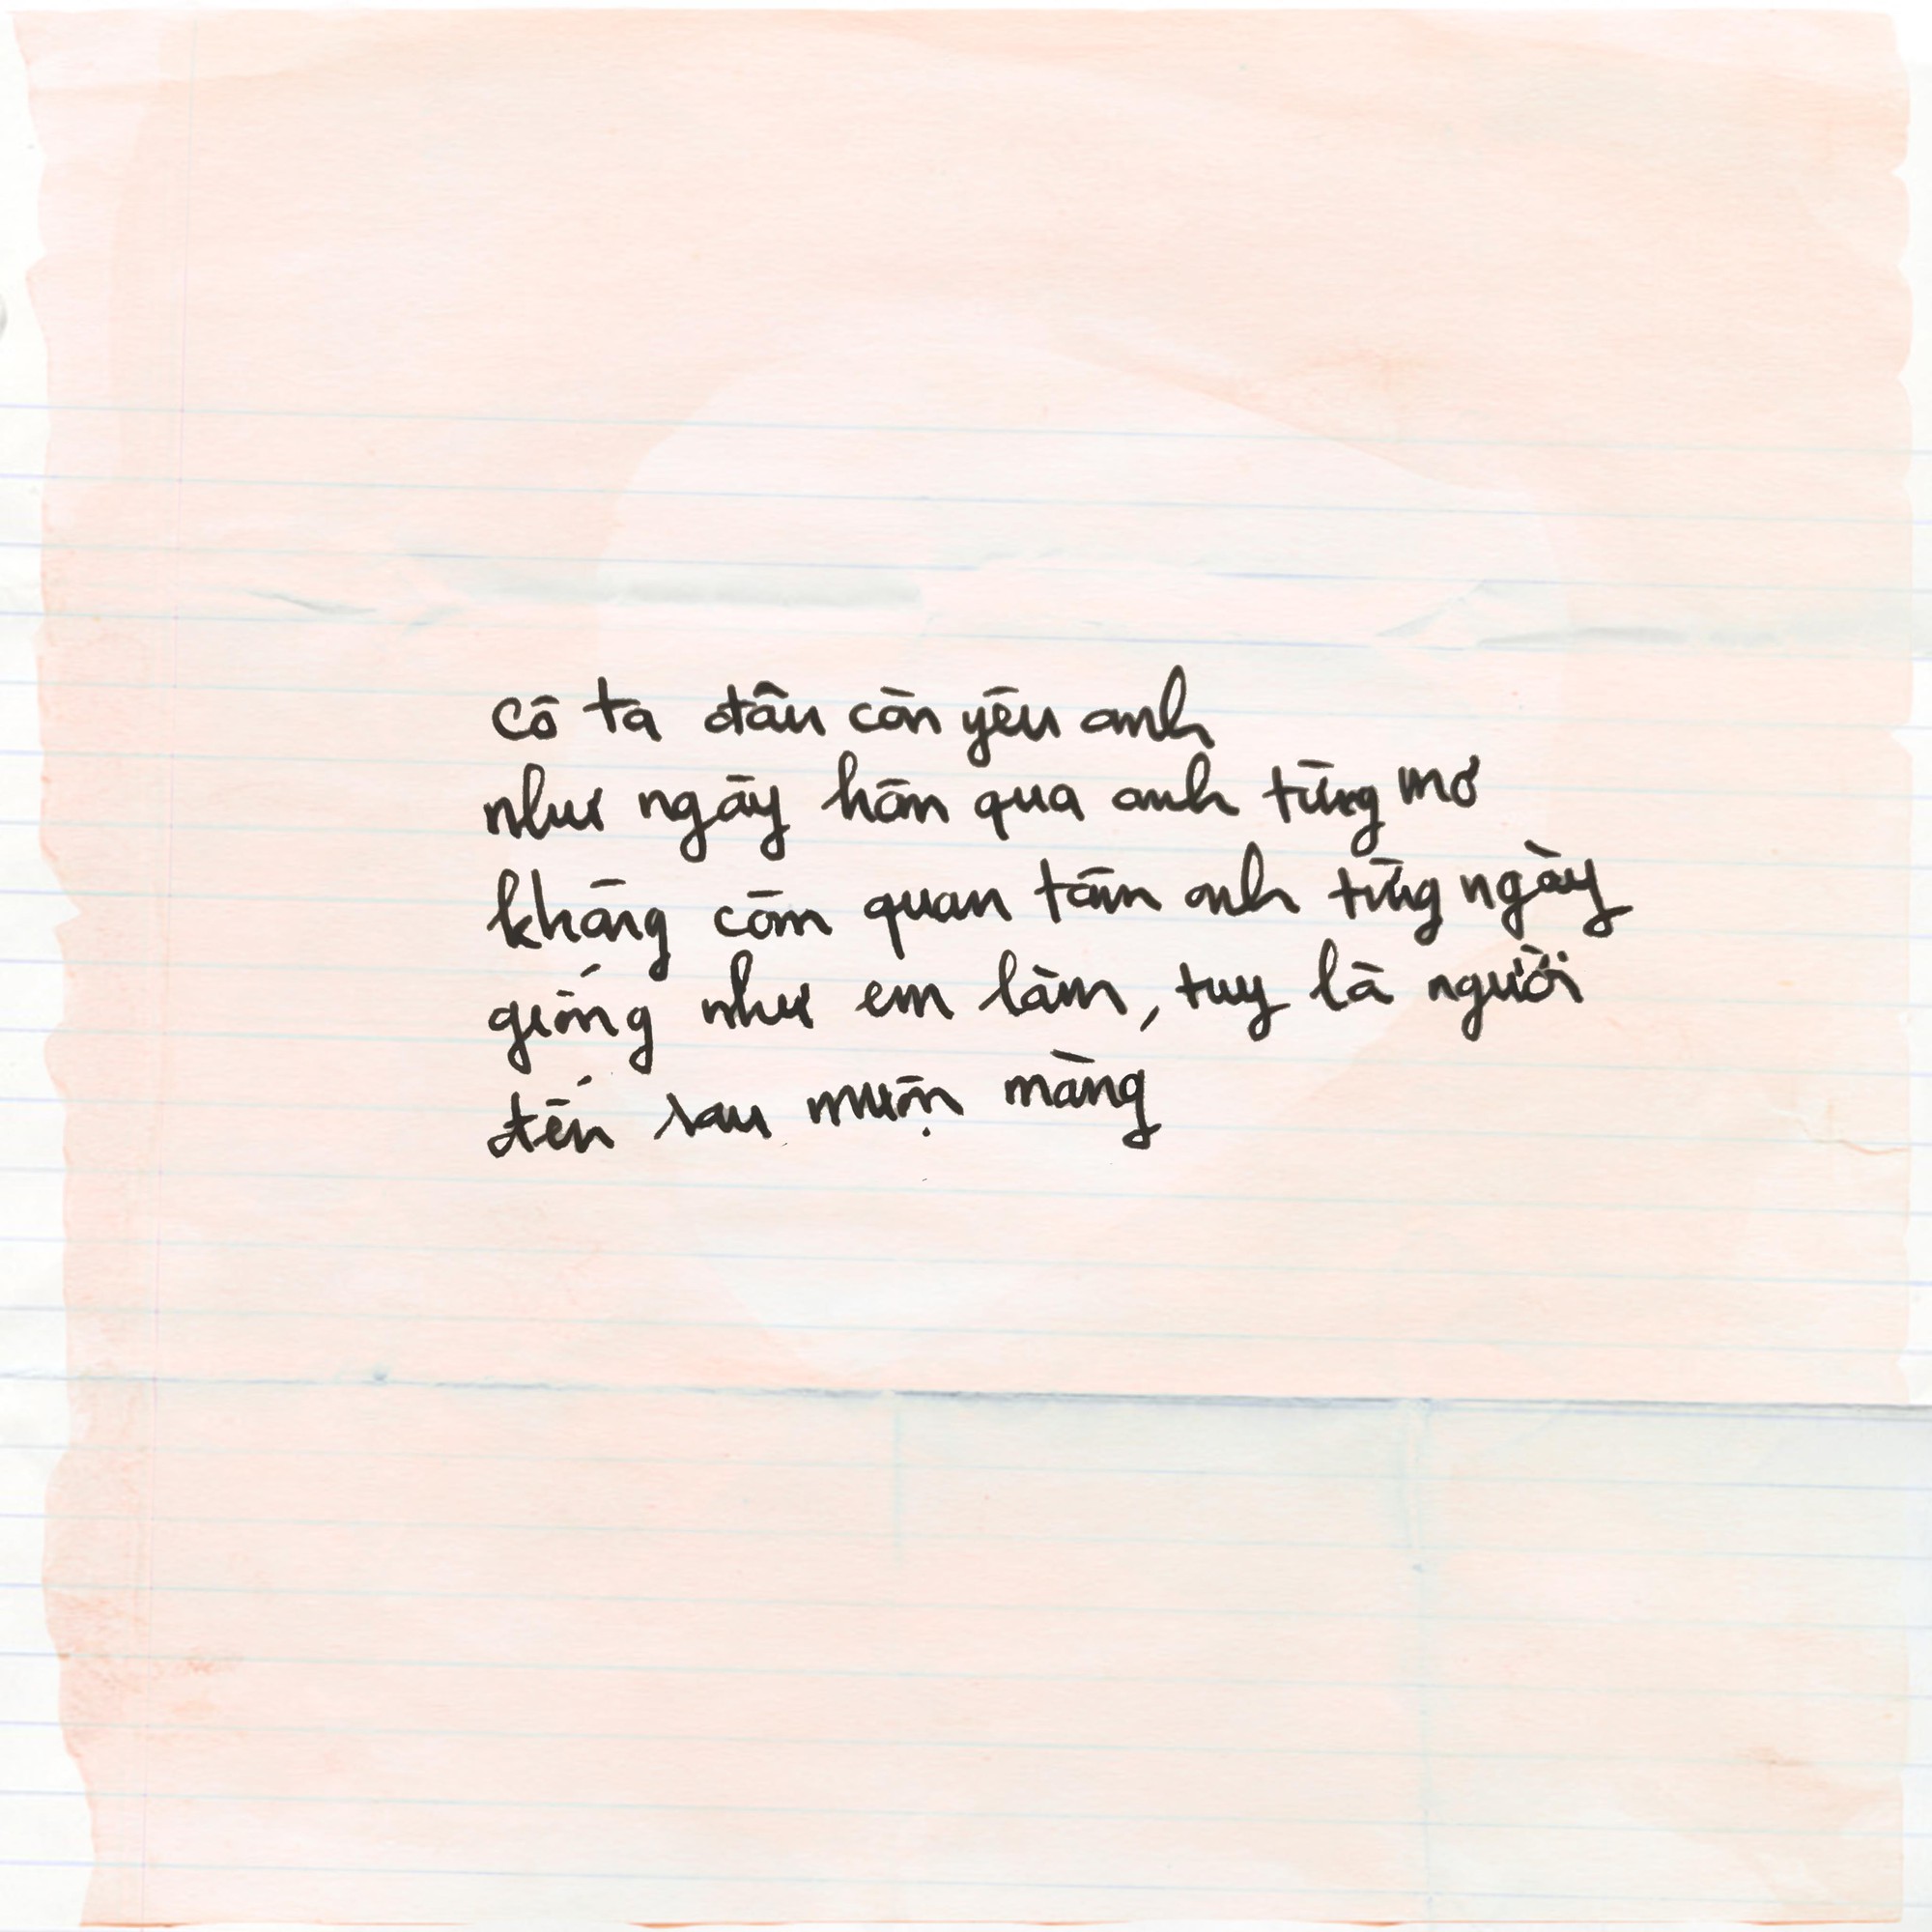 cô ta đâu còn yêu anh
như ngày hôm qua anh từng mơ
không còn quan tâm anh từng ngày
giống như em làm, tuy là người
đến sau muộn màng